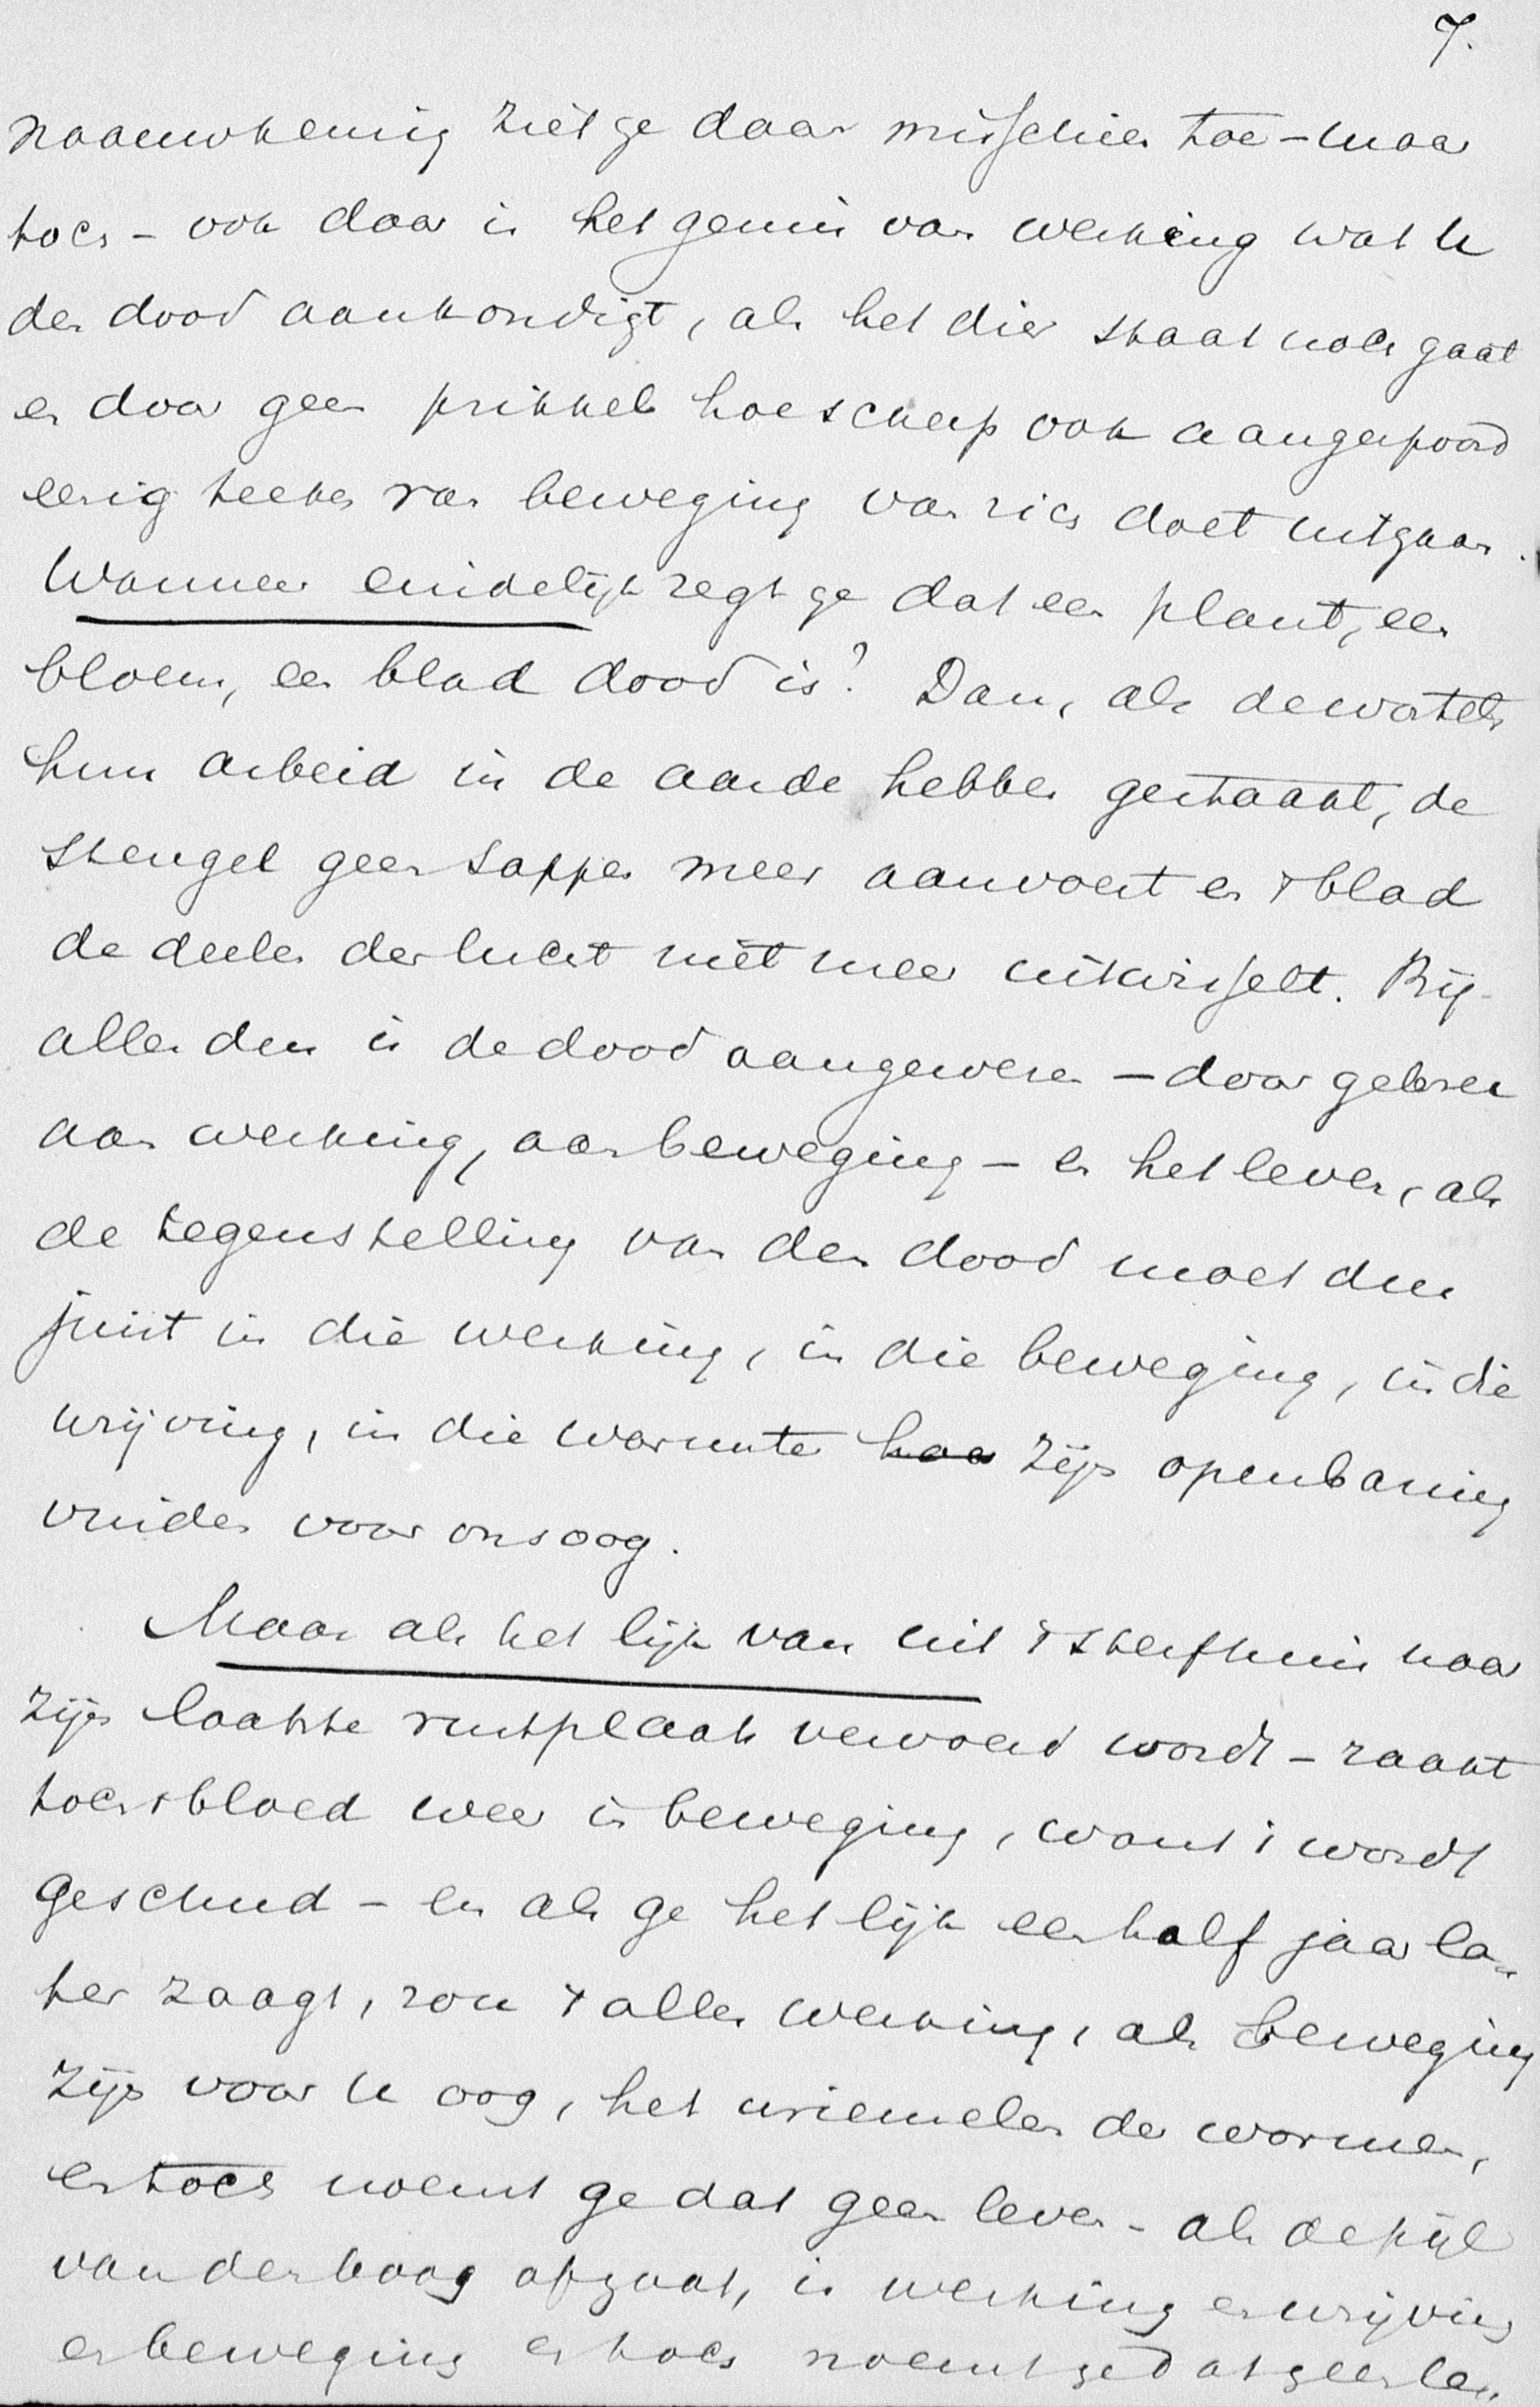 7.
naauwkeurig ziet ge daar misschien toe – maar
toch – ook daar is het gemis van werking wat U
den dood aankondigt, als het dier staat noch gaat
en door geen prikkels hoe scherp ook aangespoord
eenig teeken van beweging van zich doet uitgaan.
Wanneer eindelijk zegt ge dat een plant, een
bloem, een blad dood is? Dan, als de wortels
hun arbeid in de aarde hebben gestaakt, de
stengel geen sappen meer aanvoert en 't blad
de deelen der lucht niet meer uitwisselt. Bij
allen dus is de dood aangewezen – door gebrek
aan werking, aan beweging – en het leven, als
de tegenstelling van den dood moet dus
juist in die werking, in die beweging, in die
wrijving, in die warmte haar zijn openbaring
vinden voor ons oog.
Maar als het lijk van uit 't sterfhuis naar
zijn laatste rustplaats vervoerd wordt – raakt
toch 't bloed weer in beweging, want 't wordt
geschud – en als ge het lijk een half jaar la-
ter zaagt, zou 't alles werking, als beweging
zijn voor U oog, het wriemelen der wormen,
en toch noemt ge dat geen leven – als de pijl
van den boog afgaat, is werking en wrijving
en beweging en toch noemt ge dat geen le-